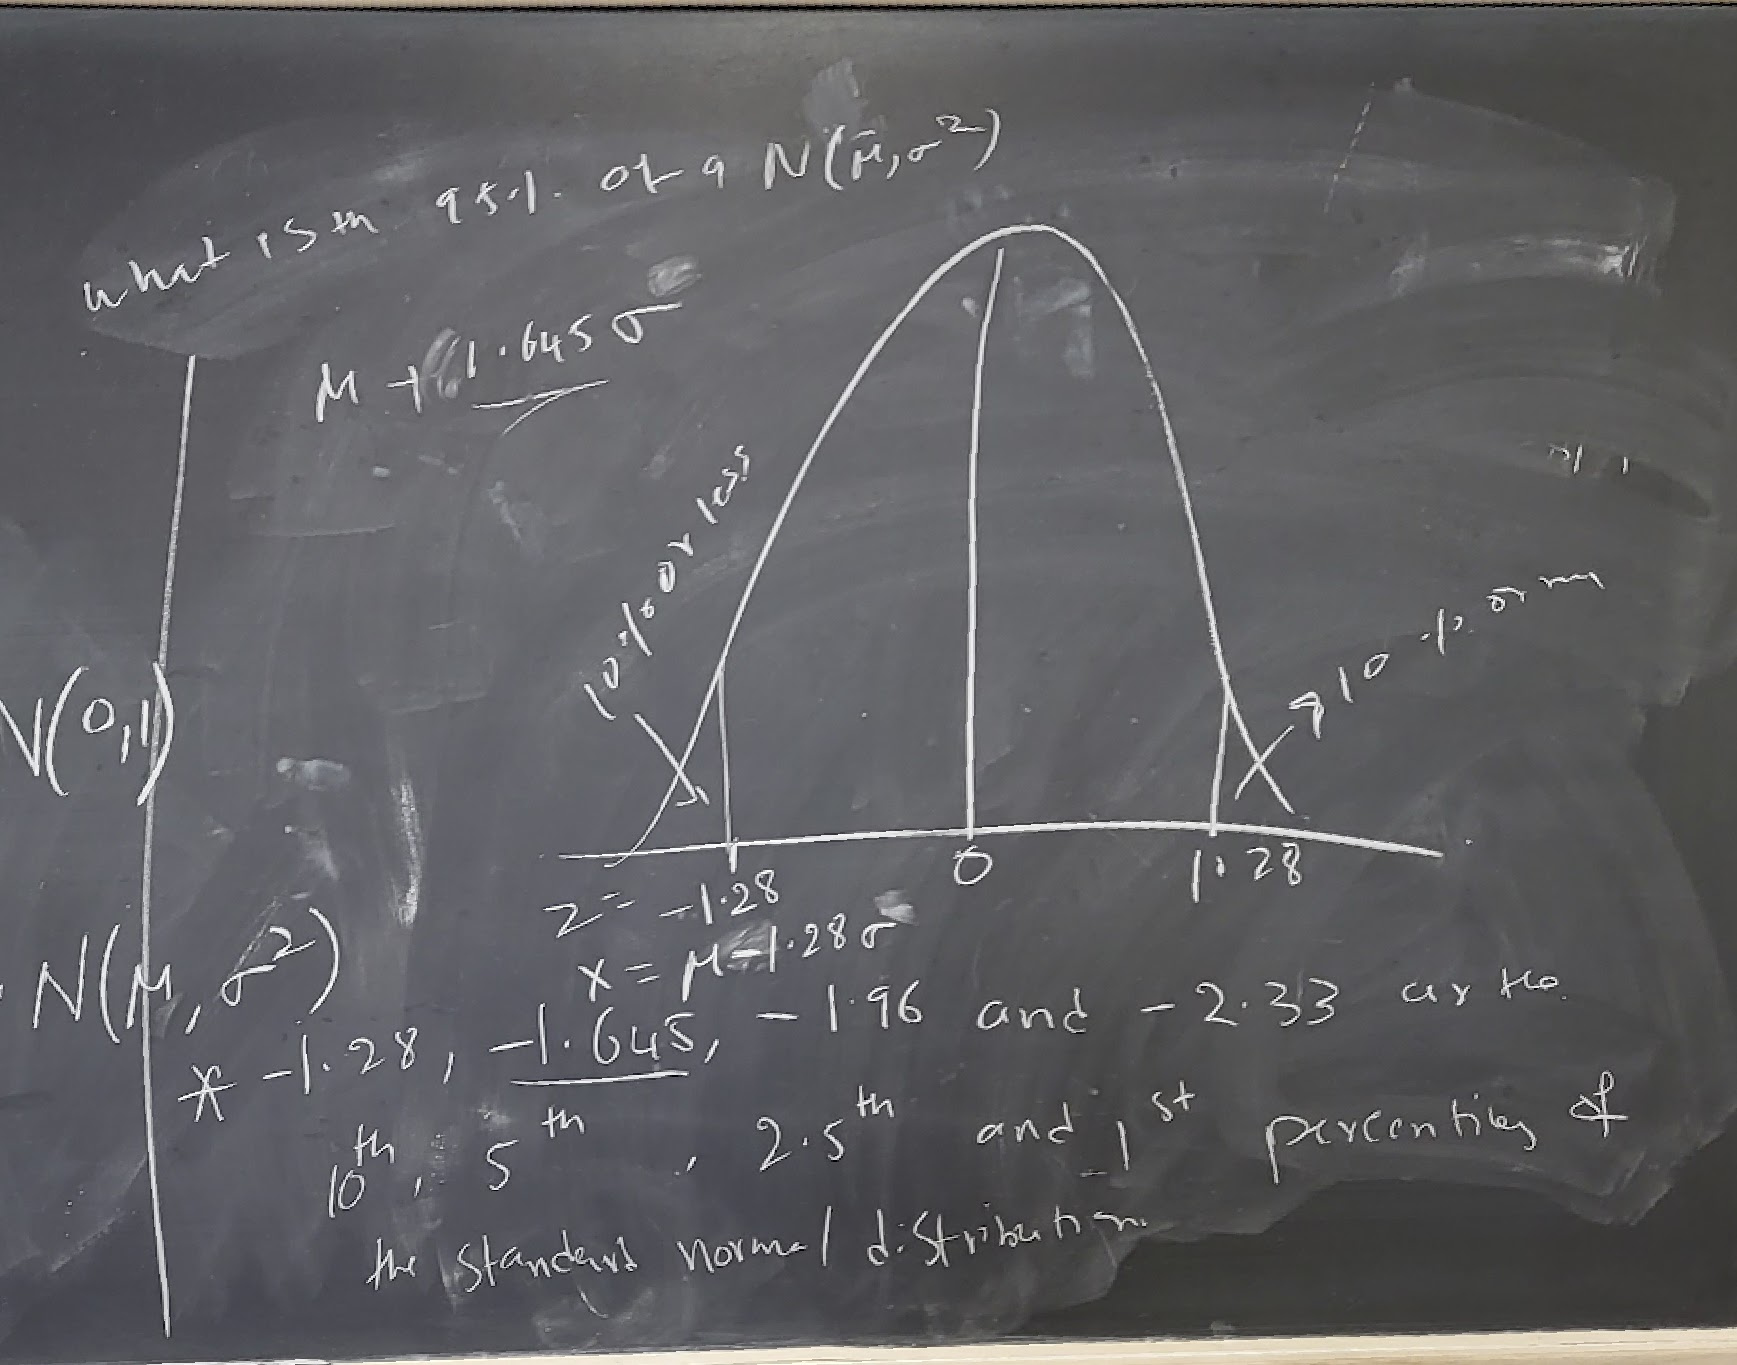 what is th 95% of a N(μ, σ²)
μ + 1.645 σ
10% or less
10% or m
N(0,1)
0
1.28
z = -1.28
x = μ - 1.28 σ
N(μ, σ²)
* -1.28, -1.645, -1.96 and -2.33 ar the
10th, 5th, 2.5th and 1st percentiles of
the standard normal distribution.